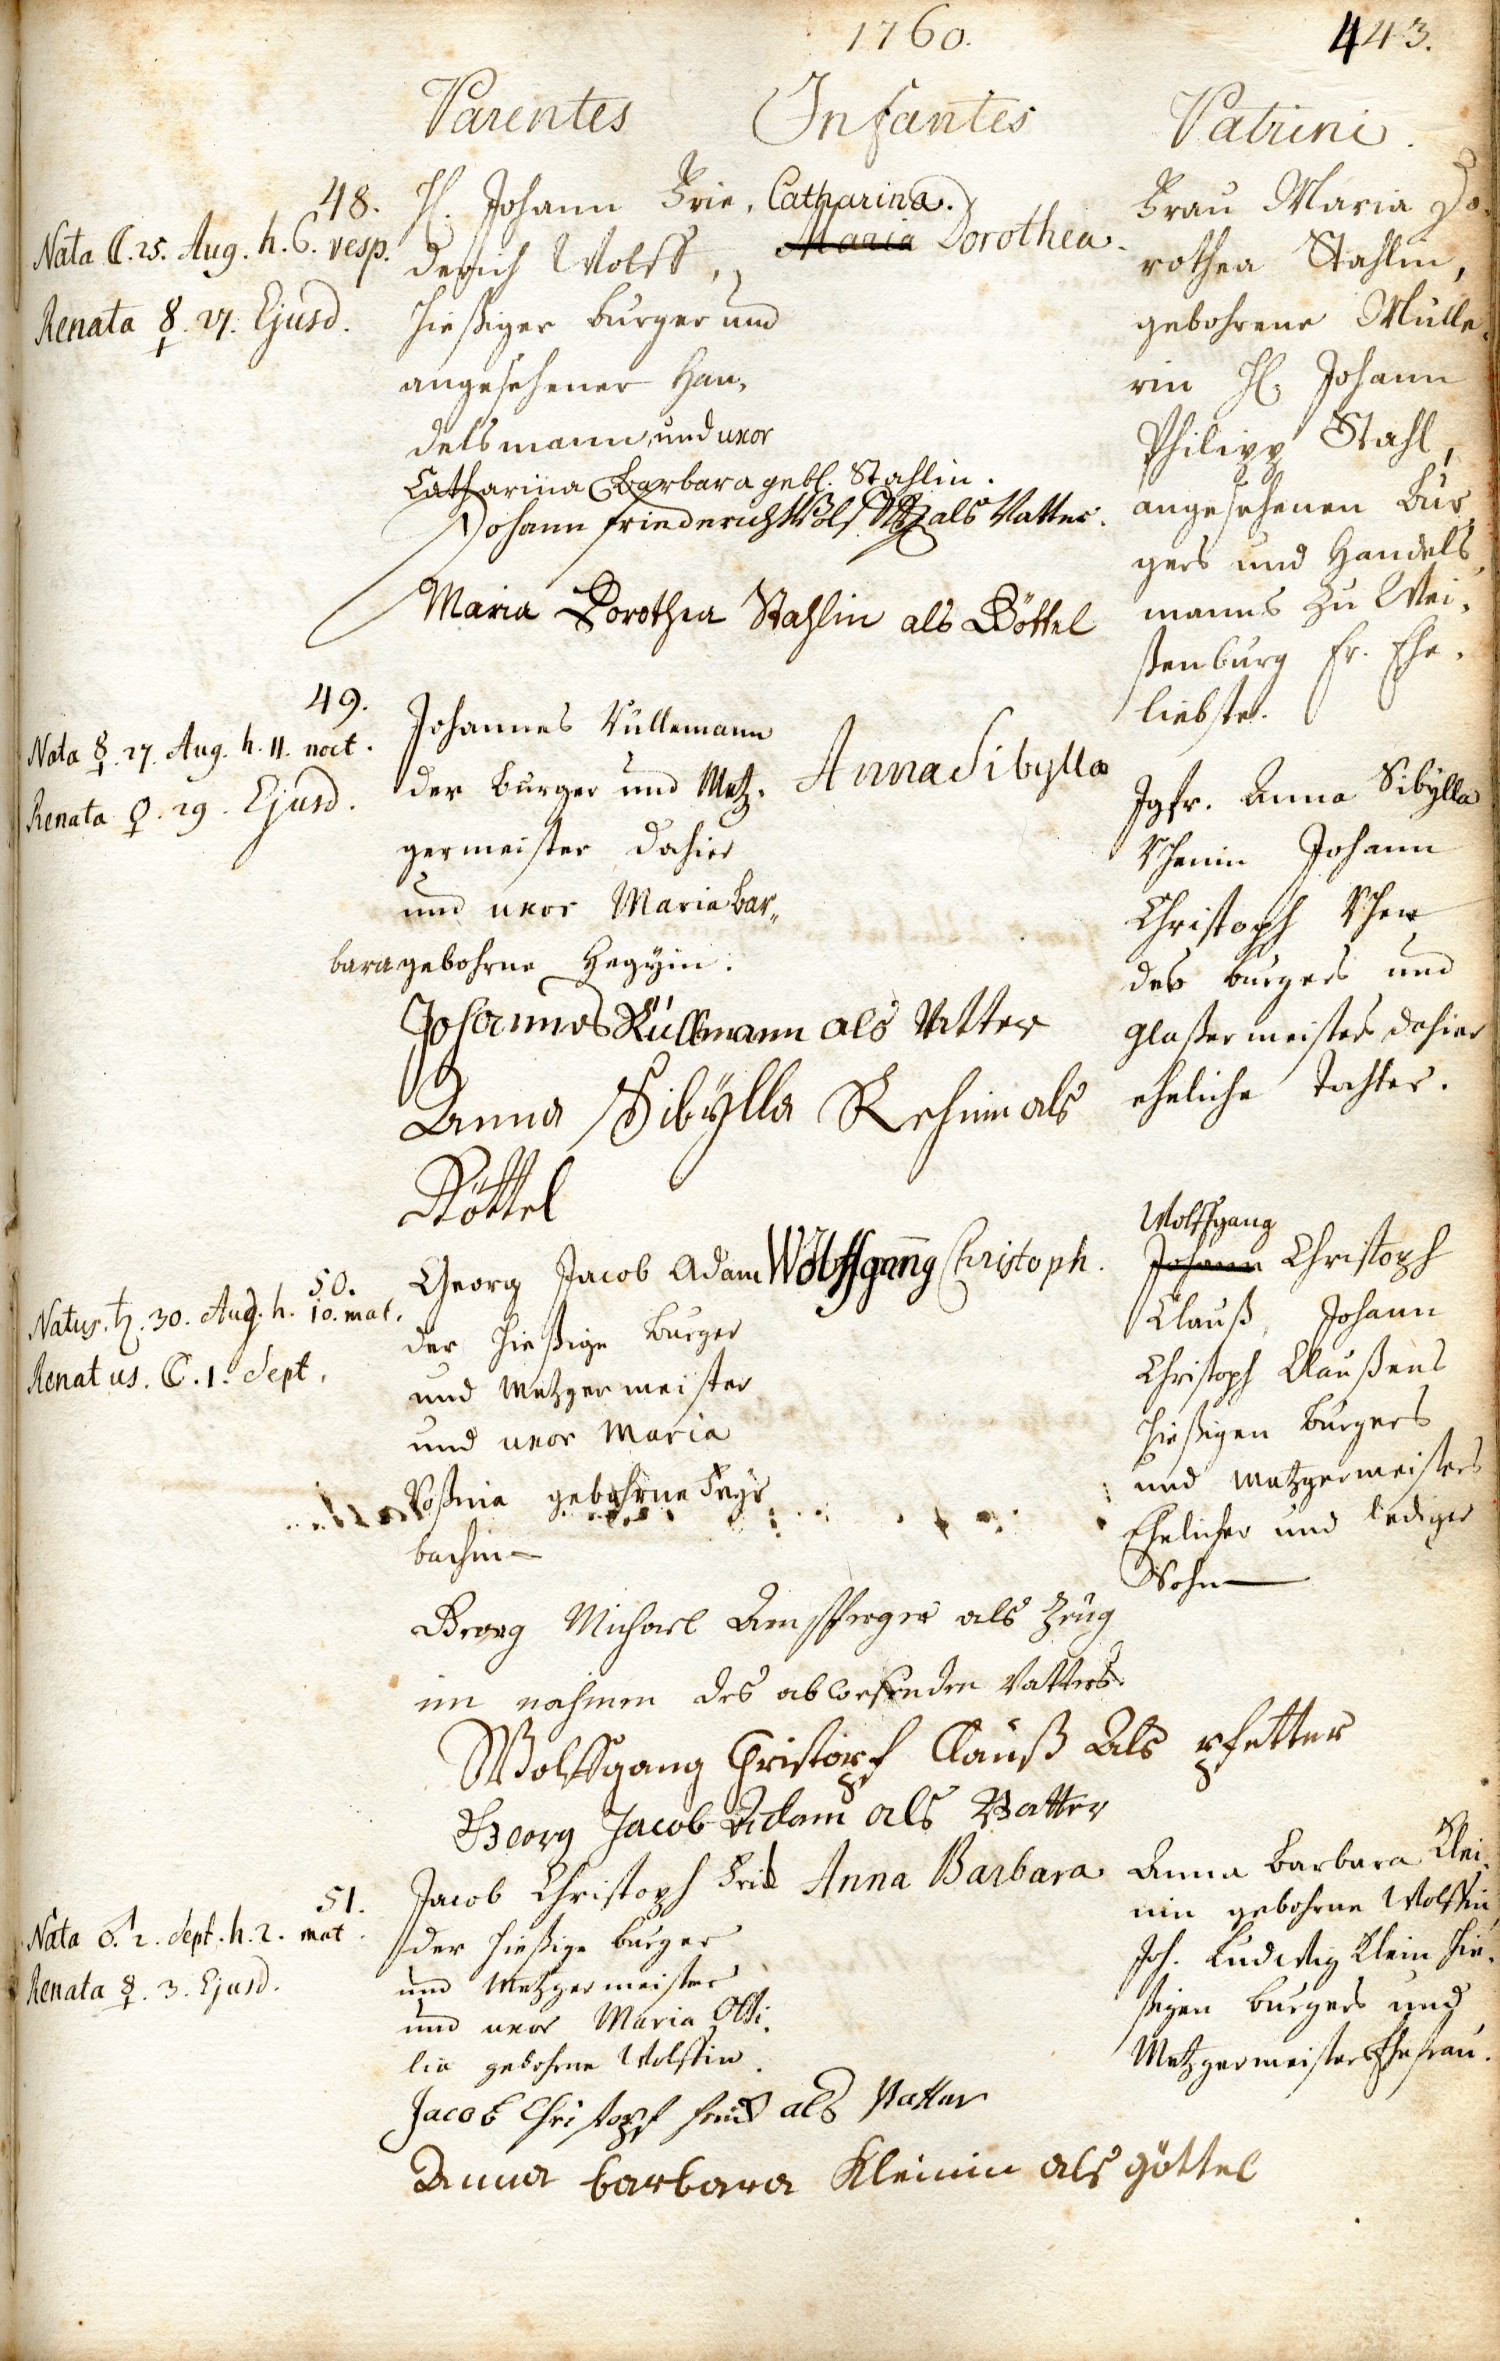 1760.
443.
Parentes Infantes Patrini.
48.
Nata ☾. 25. Aug. h. 6. vesp.
Renata ☿. 27. Ejusd.
H. Johann Frie,
derich Wolff,
hießiger burger und
angesehener Han,
delsmann, und uxor
Catharina Barbara gebl. Stahlin.
Johann friederich Wolff als Vatter.
Maria Dorothea Stahlin als Göttel
Catharina.
Maria Dorothea.
Frau Maria Do,
rothea Stahlin,
gebohrene Mülle,
rin H. Johann
Philipp Stahl,
angesehenen Bur,
gers und Handels,
manns zu Wei,
ßenburg Fr. Ehe,
liebste.
49.
Nata ☿. 27. Aug. h. 11. noct.
Renata ♀. 29. Ejusd.
Johannes Küllemann
der burger und Metz,
germeister dahier
und uxor Maria Bar,,
bara gebohrne Hegÿin.
Johannes Küllmann als Vatter
Anna Sibÿlla Rehmin als
Göttel
Anna Sibylla
Jgfr. Anna Sibÿlla
Johann
Christoph
des burgers und
Glaßermeisters dahier
eheliche Tochter.
50.
Natus. ♄. 30. Aug. h. 10. mat.
Renatus. ☾. 1. Sept.
Georg Jacob Adam
der hießige burger
und Metzgermeister
und uxor Maria
Roßina gebohrne Feyr
bachin
Georg Michael als Zeug
im nahmen des abwesenden Vatters.
Wolffgang Christopf Clauß Als pfetter
Georg Jacob Adam als Vatter
Wolffgang Christoph.
Wolffgang
Johann Christoph
Clauß, Johann
Christoph Claußens
hießigen burgers
und Metzgermeisters
Ehelicher und lediger
Sohn
51.
Nata ♂. 2. Sept. h. 2. mat.
Renata ☿. 3. Ejusd.
Jacob Christoph
der hießige burger
und Metzgermeister
und uxor Maria Otti,
lia gebohrne Wolffin.
Jacob Christopf als Vatter
Anna barbara Kleinin als göttel
Anna Barbara
Anna Barbara Klei,
nin gebohrne Wolffin,
Joh. Ludwig Klein hie,
ßigen burgers und
Metzgermeisters Ehefrau.